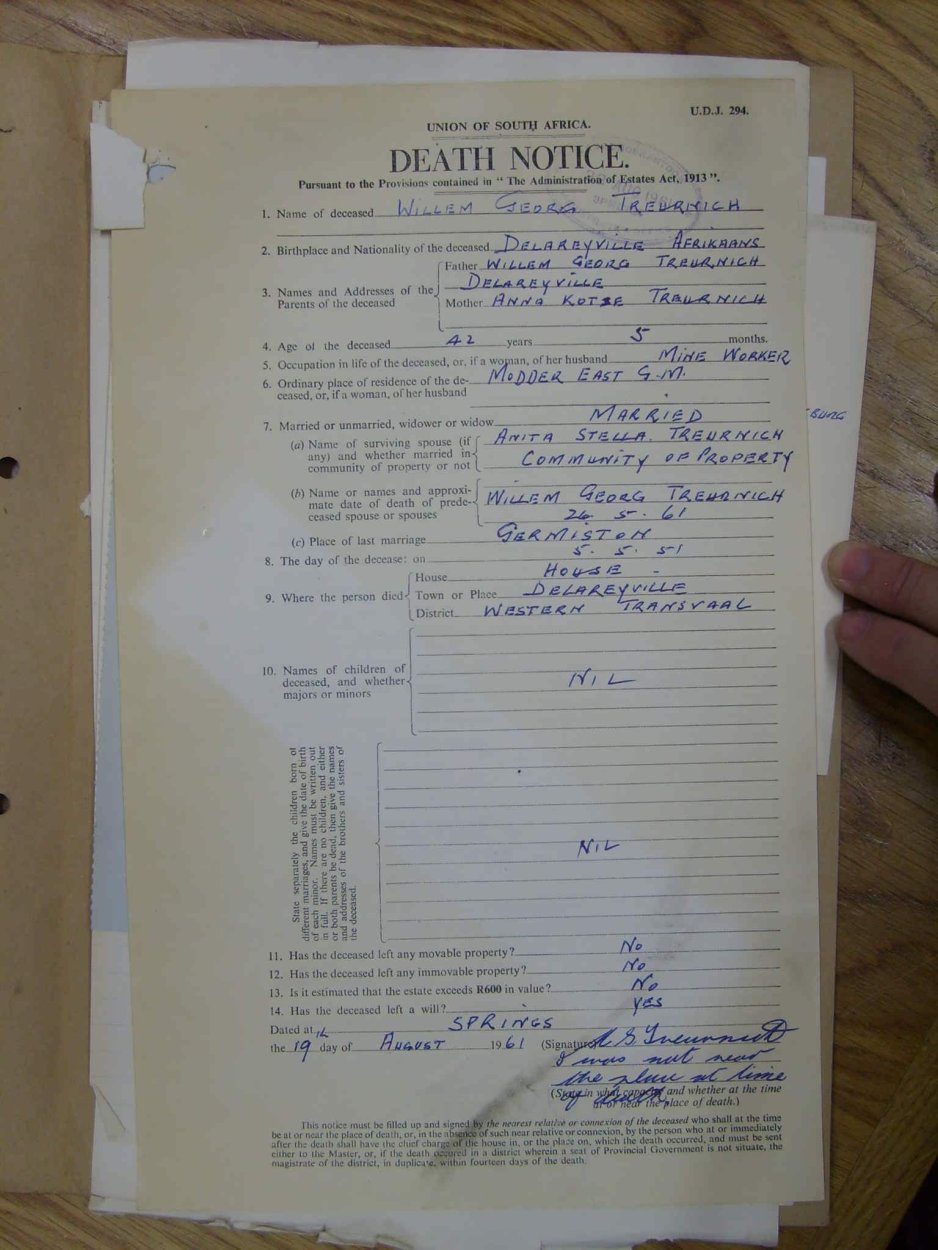 U.D.J. 294.
UNION OF SOUTH AFRICA.
DEATH NOTICE.
Pursuant to the Provisions contained in "The Administration of Estates Act, 1913".
1. Name of deceased WILLEM GEORG TREURNICH
2. Birthplace and Nationality of the deceased DELAREYVILLE AFRIKAANS
3. Names and Addresses of the Parents of the deceased
Father WILLEM GEORG TREURNICH
DELAREYVILLE
Mother ANNA KOTZE TREURNICH
4. Age of the deceased 42 years 5 months.
5. Occupation in life of the deceased, or, if a woman, of her husband MINE WORKER
6. Ordinary place of residence of the de- MODDER EAST G.M.
ceased, or, if a woman, of her husband
BURG
7. Married or unmarried, widower or widow MARRIED
(a) Name of surviving spouse (if ANITA STELLA. TREURNICH
any) and whether married in
community of property or not COMMUNITY OF PROPERTY
(b) Name or names and approxi- WILLEM GEORG TREURNICH
mate date of death of prede-
ceased spouse or spouses 26. 5. 61
(c) Place of last marriage GERMISTON
8. The day of the decease: on 5. 5. 51
9. Where the person died
House HOUSE -
Town or Place DELAREYVILLE
District WESTERN TRANSVAAL
10. Names of children of
deceased, and whether NIL
majors or minors
State separately the children born of
different marriages, and give the date of birth
of each minor. Names must be written out
in full. If there are no children, and either
or both parents be dead, then give the names
and addresses of the brothers and sisters of
the deceased.
NIL
11. Has the deceased left any movable property? No
12. Has the deceased left any immovable property? No
13. Is it estimated that the estate exceeds R600 in value? No
14. Has the deceased left a will? YES
Dated at SPRINGS
the 19 day of AUGUST 1961 (Signature)
I was not near
the place at time
of death
(State in what capacity and whether at the time
at or near the place of death.)
This notice must be filled up and signed by the nearest relative or connexion of the deceased who shall at the time
be at or near the place of death, or, in the absence of such near relative or connexion, by the person who at or immediately
after the death shall have the chief charge of the house in, or the place on, which the death occurred, and must be sent
either to the Master, or, if the death occured in a district wherein a seat of Provincial Government is not situate, the
magistrate of the district, in duplicate, within fourteen days of the death.